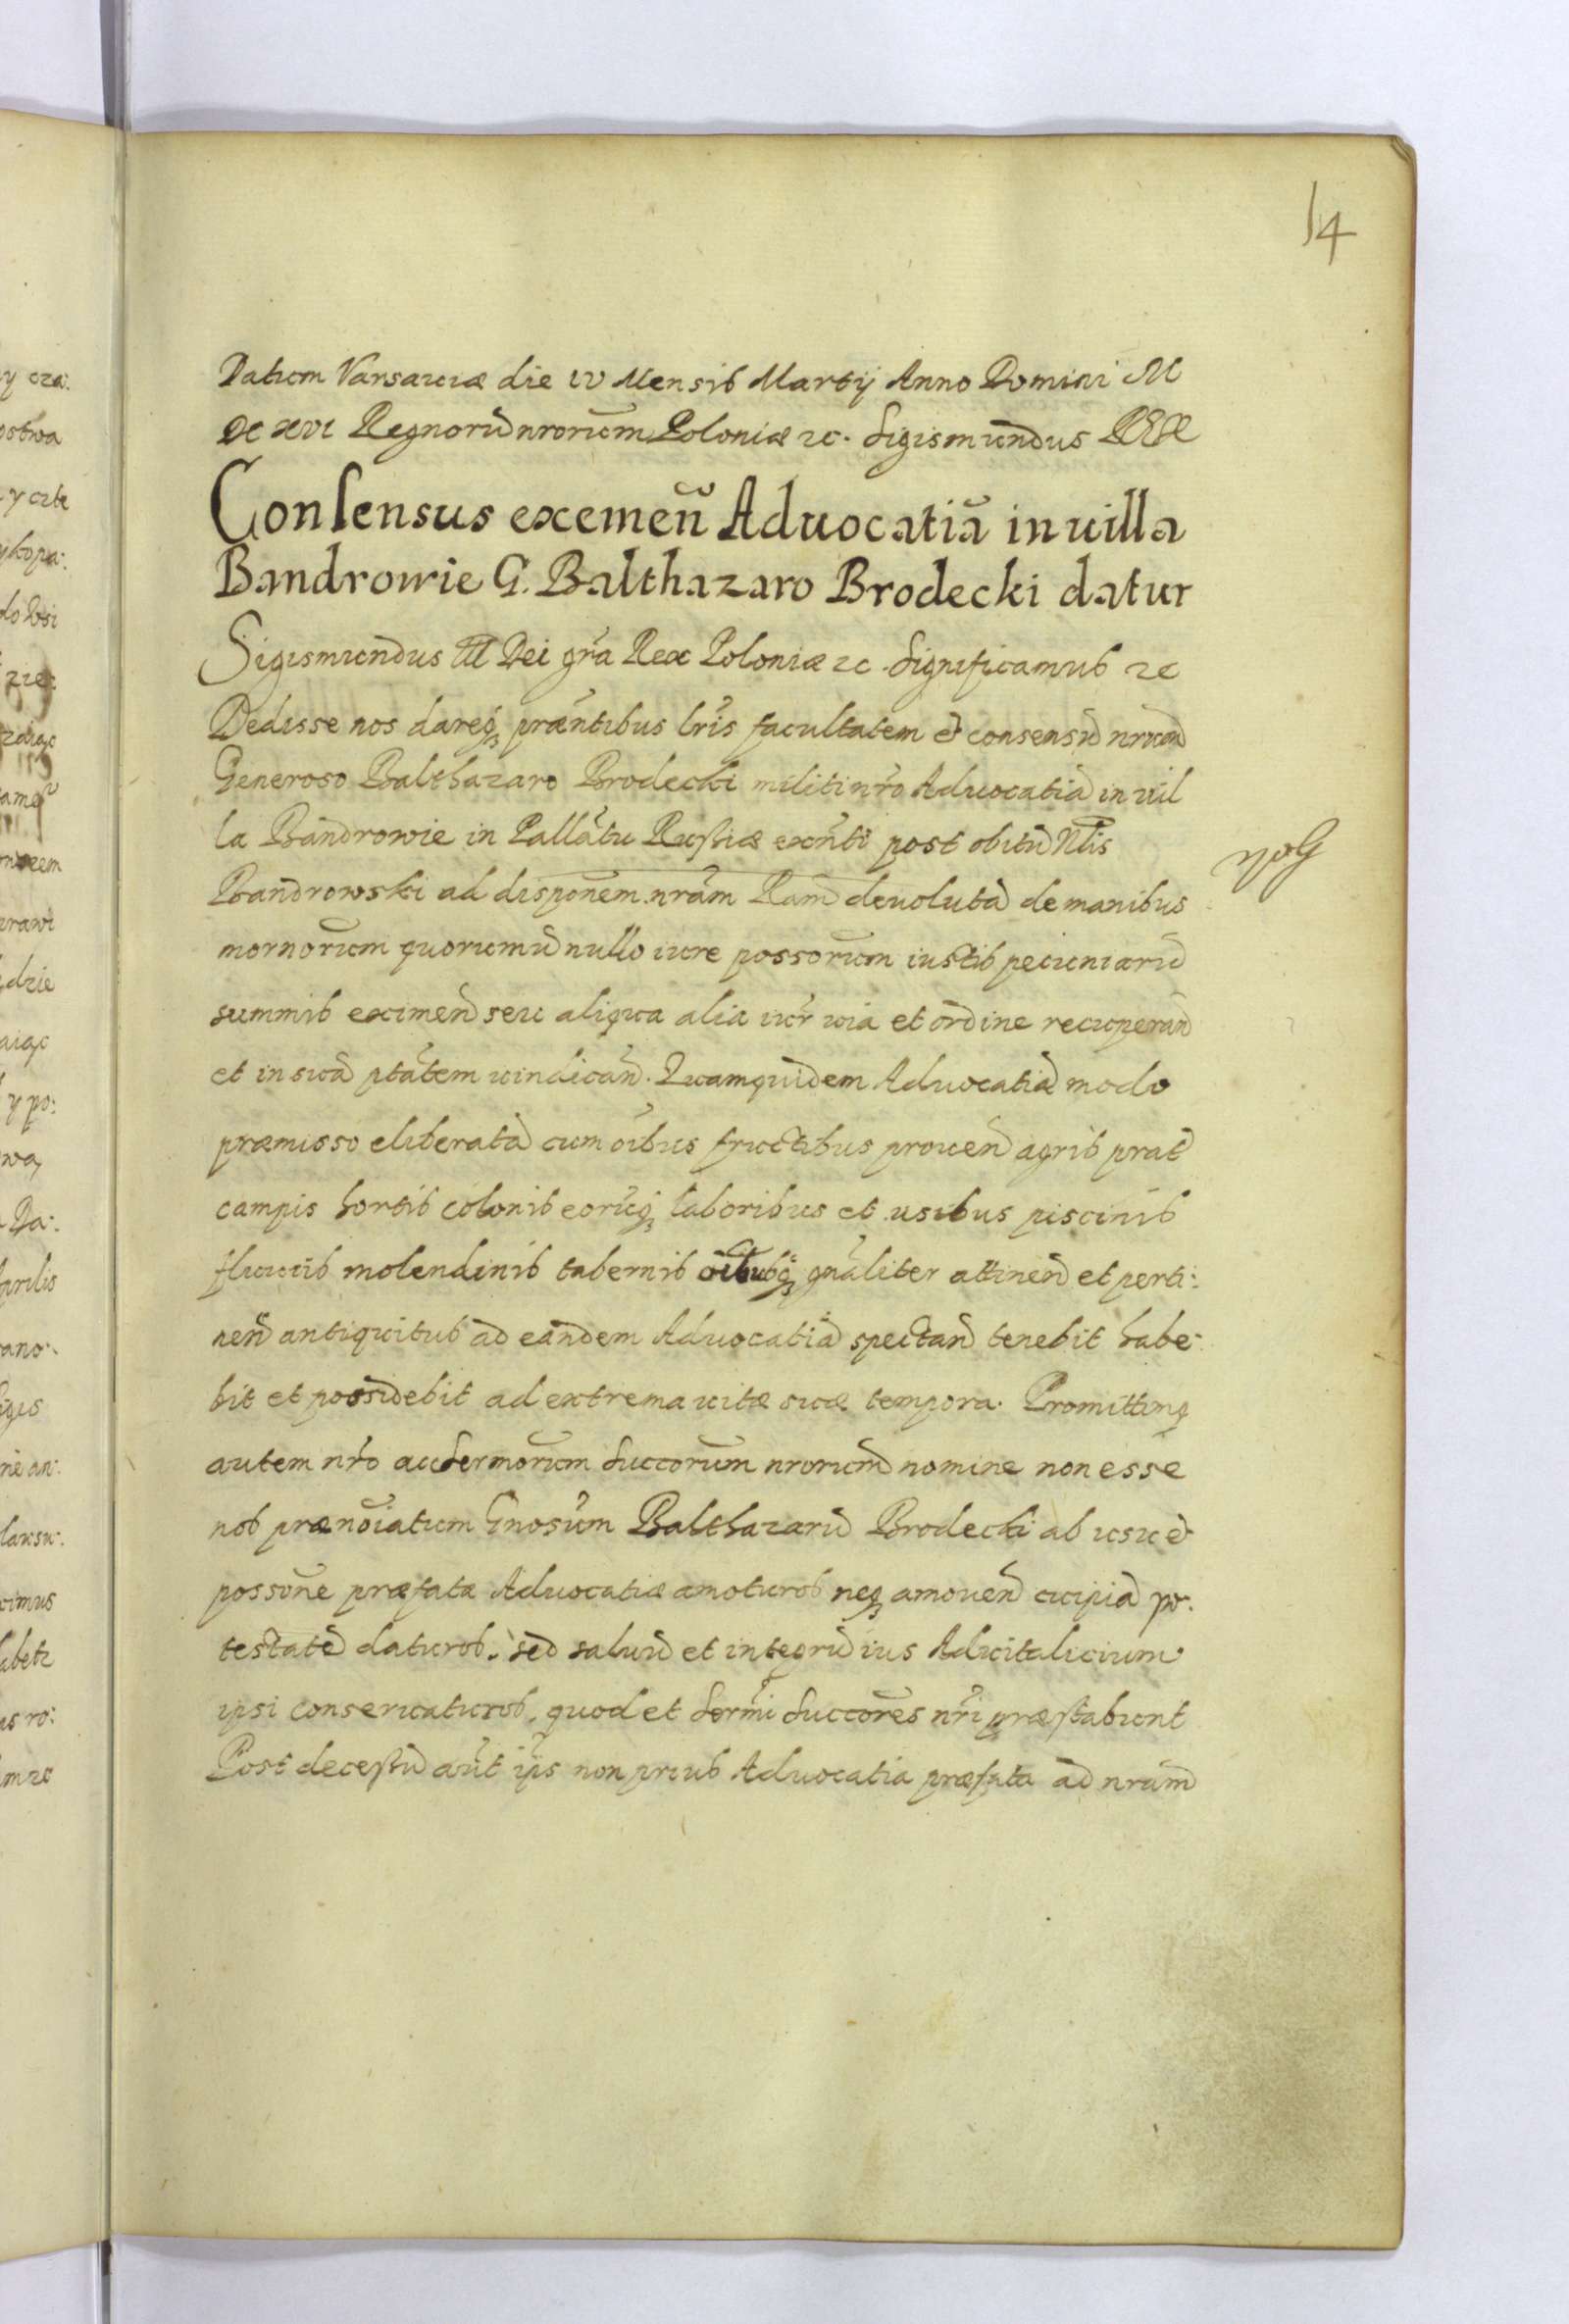 14
Datum Varsauiæ die IV Mensis Martij Anno Domini M
DC XVI Regnorū nrorum Poloniæ ꝛc. Sigismundus REX
Consensus exemeñ Aduocatiā in uilla
Bandrowie G. Balthazaro Brodecki datur
Sigismundus III Dei gr̃a Rex Poloniæ ꝛc. Significamus ꝛc
Dedisse nos dareq; præñtibus lr̃is facultatem et consensū nrum
Generoso Balthazaro Brodecki militi nr̃o Aduocatiā in uil
la Bandrowie in Pallãtu Russiæ exñti post obitū Nlis
Bandrowski ad disponem nrãm Rãm deuolutā de manibus
mornorum quorumū nullo iure possorum iustis pecuniariū
summis eximeñ seu aliqua alia iur uia et ordine recuperañ
et in suā ptãtem uindicañ. Quamquidem Aduocatiā modo
præmisso eliberatā cum oĩbus fructibus proueñ agris prat
campis hortis colonis eorūq; laboribus et usibus piscinis
fluuiis molendinis tabernis oĩbusq; gñaliter attineñ et perti:
neñ antiquitus ad eandem Aduocatiā spectañ tenebit habe:
bit et possidebit ad extrema uitæ suæ tempora. Promittimq
autem nr̃o ac Sermorum Succorum nrorum nomine non esse
nos prænoĩatum Gnosum Balthazarū Brodecki ab usu et
possone præfatæ Aduocatiæ amoturos neq; amoueñ cuipiā po:
testatē daturos. sed saluū et integrū ius Aduitalicium
ipsi conseruaturos, quod et Sermi Succores nr̃i præstabunt
Post decessū aũt ip̃s non prius Aduocatia præfata ad nrãm